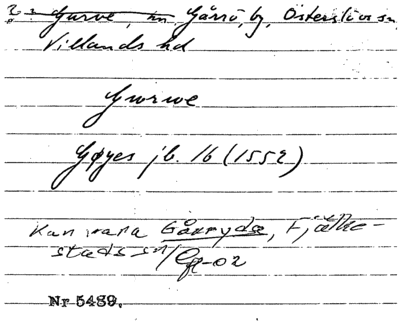 ? : Gurve, hn Gårrö, by, Österslövs sn,
Villands hd
Gwrwe
Gøyes jb. 16 (1552)
Kan vara Gåaryda, Fjälke-
stads sn/
Nr 5489.